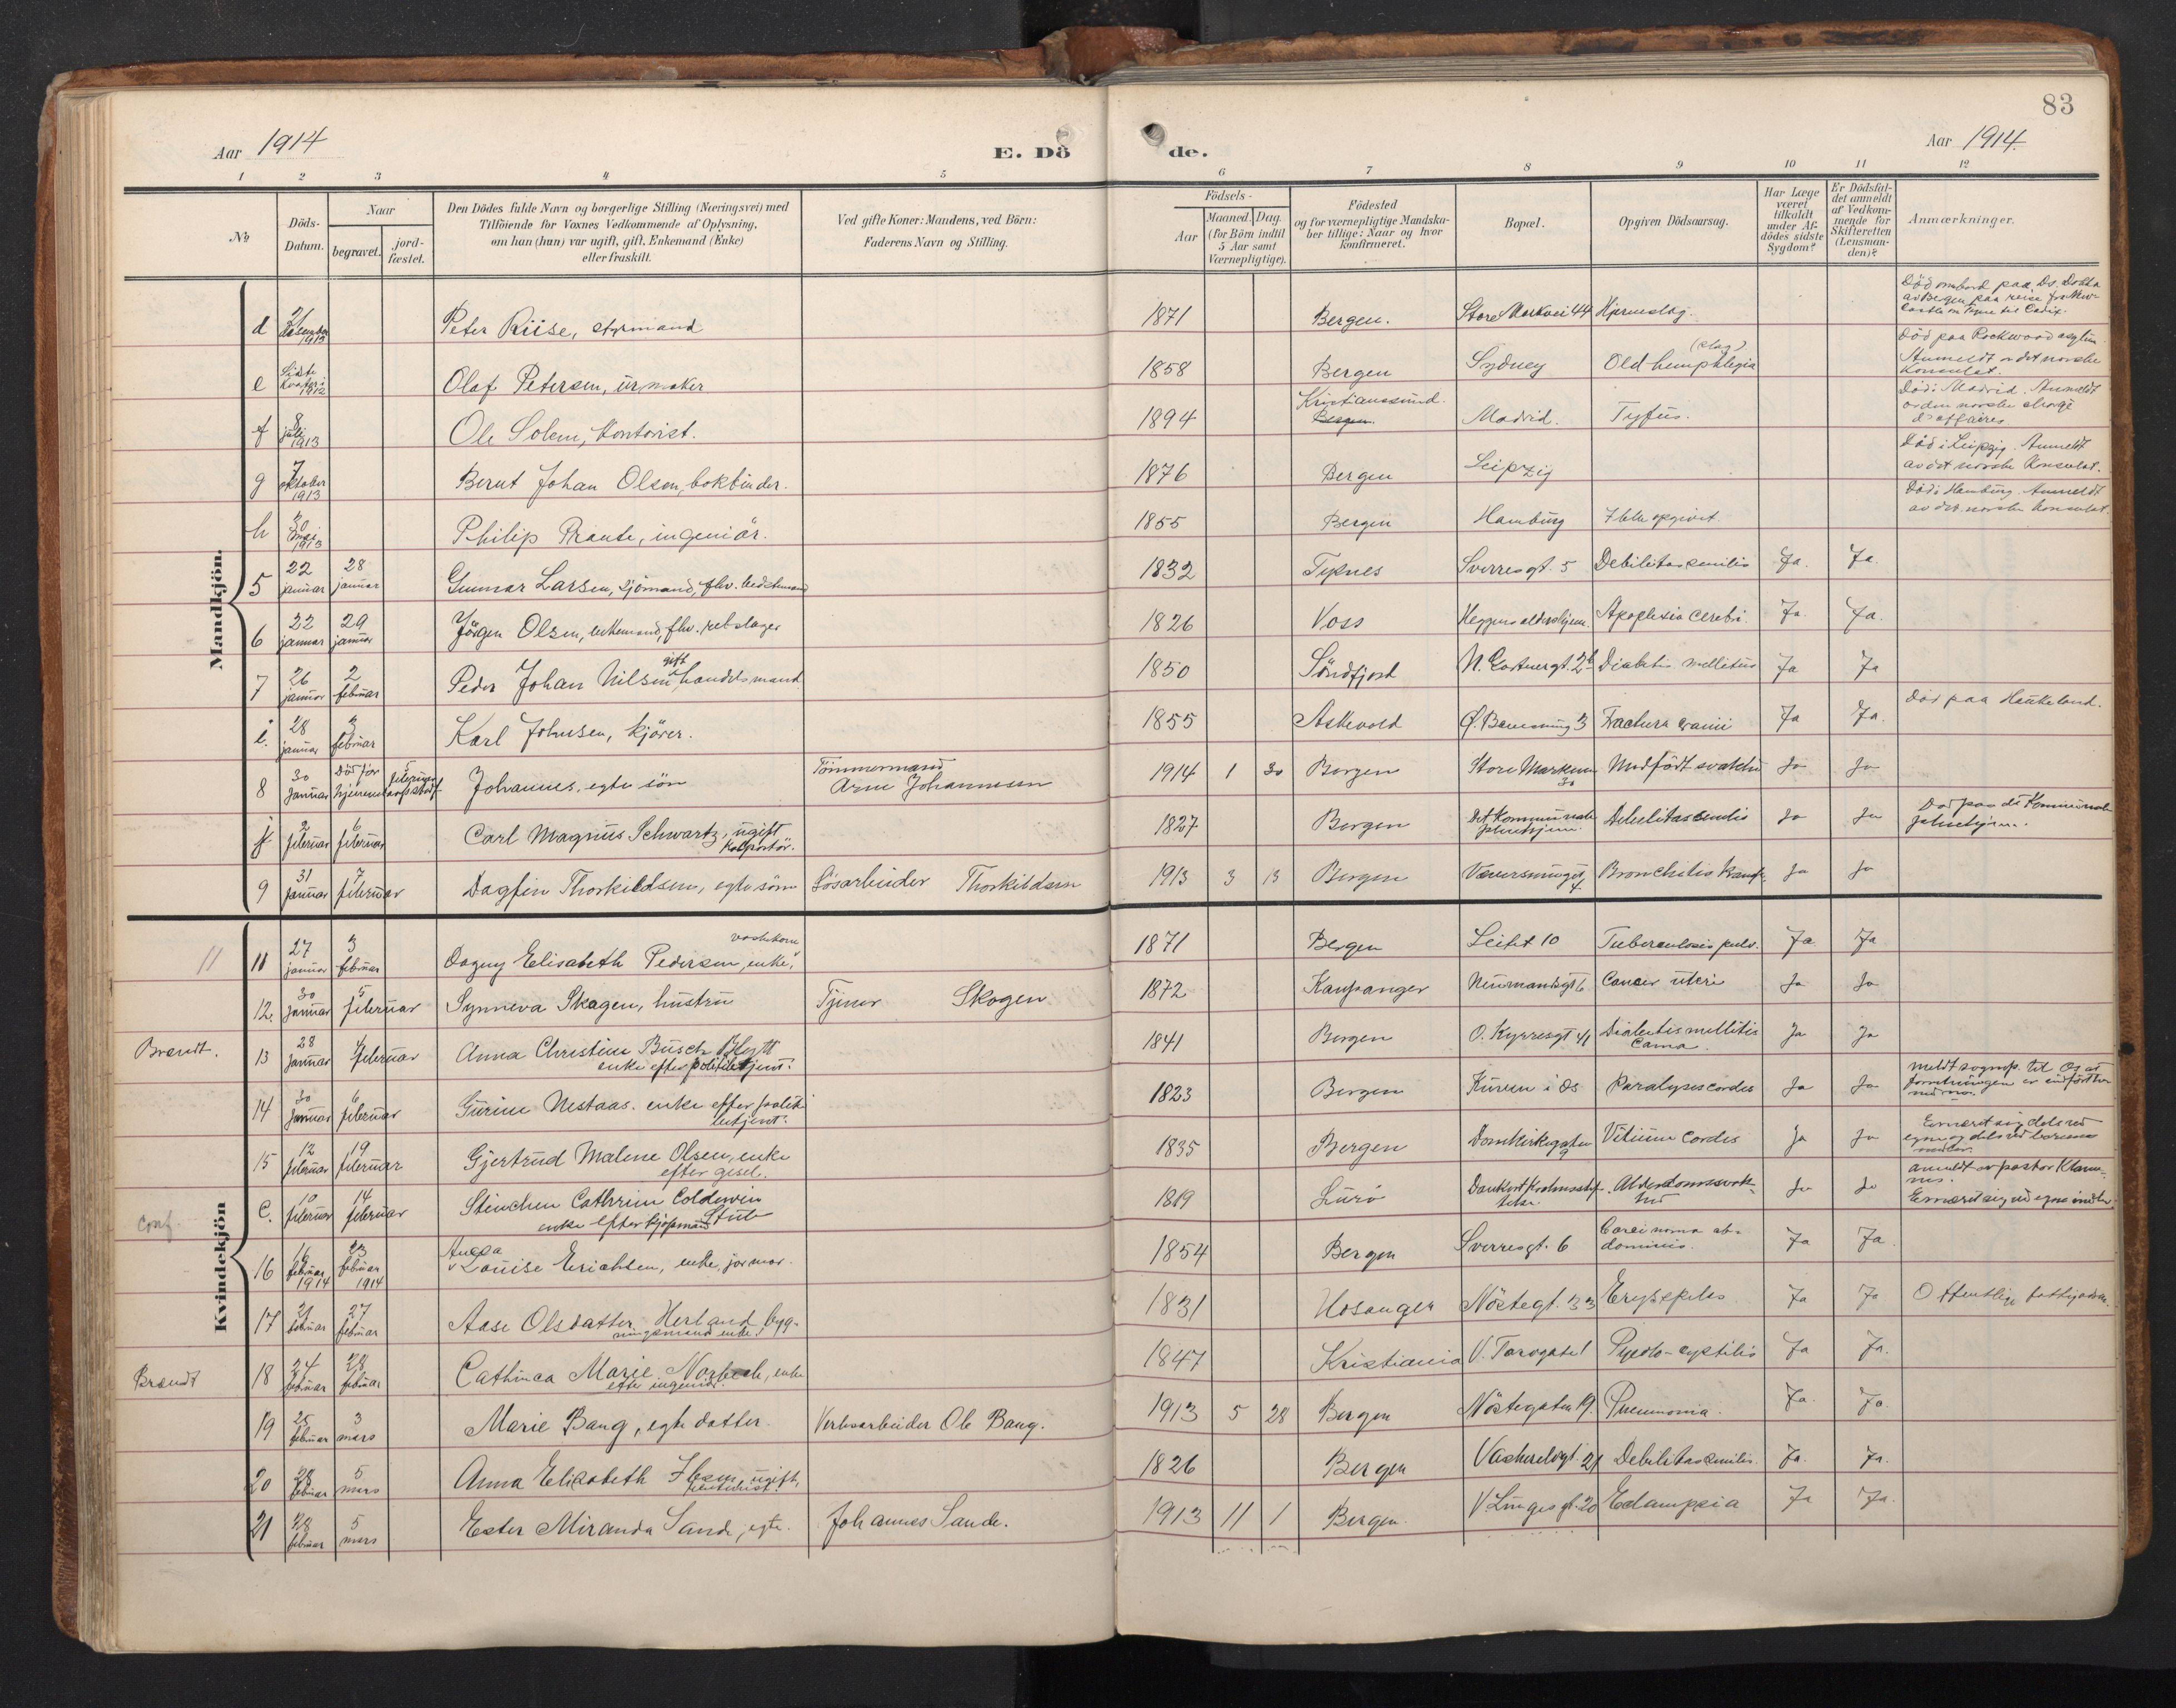 83
Aar 1914
E. Dö de.
Aar 1914.
1 2 3 4 5 6 7 8 9 10 11 12
No
Döds-Datum.
Naar
begravet.
jord-fæstet.
Den Dödes fulde Navn og borgerlige Stilling (Næringsvei) med
Tilföiende for Voxnes Vedkommende af Oplysning,
om han (hun) var ugift, gift, Enkemand (Enke)
eller fraskilt.
Ved gifte Koner: Mandens, ved Börn:
Faderens Navn og Stilling.
Födsels-
Aar
Maaned. Dag.
(for Börn indtil
5 Aar samt
Værnepligtige).
Födested
og for værnepligtige Mandska-
ber tillige: Naar og hvor
konfirmeret.
Bopæl.
Opgiven Dödsaarsag.
Har Læge
været
tilkaldt
under Af-
dödes sidste
Sygdom?
Er Dödsfal-
det anmeldt
af Vedkom-
mende for
Skifteretten
(Lensman-
den)?
Anmærkninger.
Mandkjön.
d 1913 Peter Riise, styrmand 1871 Bergen. Store Markvei 44 Hjerneslag. Död ombord paa Ds. av Bergen paa reise fra New-castle on Tyne til Cadix.
e Sidste 1912 Olaf Petersen, urmaker 1858 Bergen Sydney Old hemiphlegia (slag) Död paa Rockwood asylum Anmeldt av det norske konsulat.
f 8 juli 1913 Ole Solem, kontorist. 1894 Kristianssund. Bergen. Madrid. Tyfus. Död i Madrid. Anmeldt av den norske chargé d'affaires
g 7 oktober 1913 Bernt Johan Olsen, bokbinder. 1876 Bergen Leipzig Död i Leipzig. Anmeldt av det norske konsulat.
h 30 mai 1913 Philip Prante, ingeniör. 1855 Bergen Hamburg Ikke opgivet. Död i Hamburg. Anmeldt av det norske konsulat.
5 22 januar 28 januar Gunnar Larsen, sjömand, fhv. 1832 Tysnes Sverresgt. 5 Debilitas senilis Ja. Ja.
6 22 januar 29 januar Jörgen Olsen, enkemand, fhv. rebslager 1826 Voss aldershjem. Apoplexia cerebri. Ja. Ja.
7 26 januar 2 februar Peder Johan Nilsen, gift handelsmand 1850 Söndfjord 2b Diabetes mellitus Ja Ja
i. 28 januar 3 februar Karl Johnsen, kjörer. 1855 Askevold 3 Fractura cranii Ja Ja. Död paa Haukeland.
8 30 Januar Död för hjemme 5 februar Johannes, egte sön Tömmermand Arne Johannessen 1914 1 30 Bergen Store Markvei 30 Medfödt svakhet Ja Ja
j 2 februar 6 februar Carl Magnus Schwartz, ugift kolportör. 1827 Bergen Det kommunale pleiehjem. Debilitas senilis Ja Ja Död paa det kommunale pleiehjem.
9 31 Januar 7 februar Dagfin Thorkildsen, egte sönn Lösarbeider Thorkildsen 1913 3 13 Bergen 4 Bronchitis Ja Ja
Kvindekjön
11 11 27 januar 3 februar Dagny Elisabeth Pedersen, enke, vaskekone 1871 Bergen Leitet 10 Tuberculosis pulm. Ja Ja
12. 30 Januar 5 februar Synneva Skagen, hustru Tjener Skogen 1872 Kaupanger Neumandsgt 6 Cancer uteri Ja Ja
Brændt. 13 28 Januar februar Anna Christine Busch Blytt enke efter politibetjent. 1841 Bergen O. Kyrresgt 41 Diabetes mellitus Coma. Ja Ja
14 30 Januar 6 februar Gurine Nestaas. enke efter politibetjent. 1823 Bergen Kuven i Os Paralysis cordis Ja Ja
15 12 februar 19 februar Gjertrud Malene Olsen, enke efter gesel. 1835 Bergen Domkirkegaten 9 Vitium cordis Ja Ja Ernært sig dels ved egne og dels ved barnenes midler.
conf. C. 10 februar 14 februar Steinchen Cathrine Coldevin enke efter kjöpmand Stub 1819 Lurö Alderdomssvakhed Ja Ja anmeldt av pastor Ernært sig ved egne midler.
16 16 februar 1914 23 februar 1914 Louise Erichsen, enke, jormor. 1854 Bergen Sverresgt. 6 Carcinoma abdominis. Ja Ja.
17 21 februar 27 februar Aase Olsdatter Herland bygningsmand enke. 1831 Hosanger Nöstegt. 33 Erysipelas Ja Ja Offentlig
Brændt 18 24 februar 28 februar Cathinca Marie enke efter ingeniör. 1847 Kristiania V. Torvgate 1 Pyelo-cystitis Ja Ja.
19 25 februar 3 mars Marie Bang, egte datter. Verksarbeider Ole Bang. 1913 5 28 Bergen Nöstegaten 19. Pneumonia. Ja. Ja.
20 28 februar 5 mars Anna Elisabeth Ibsen, ugift, 1826 Bergen 21 Debilitas senilis. Ja. Ja.
21 28 februar 5 mars Ester Miranda Sande, egte. Johannes Sande. 1913 11 1 Bergen. 20 Eclampsia Ja Ja.